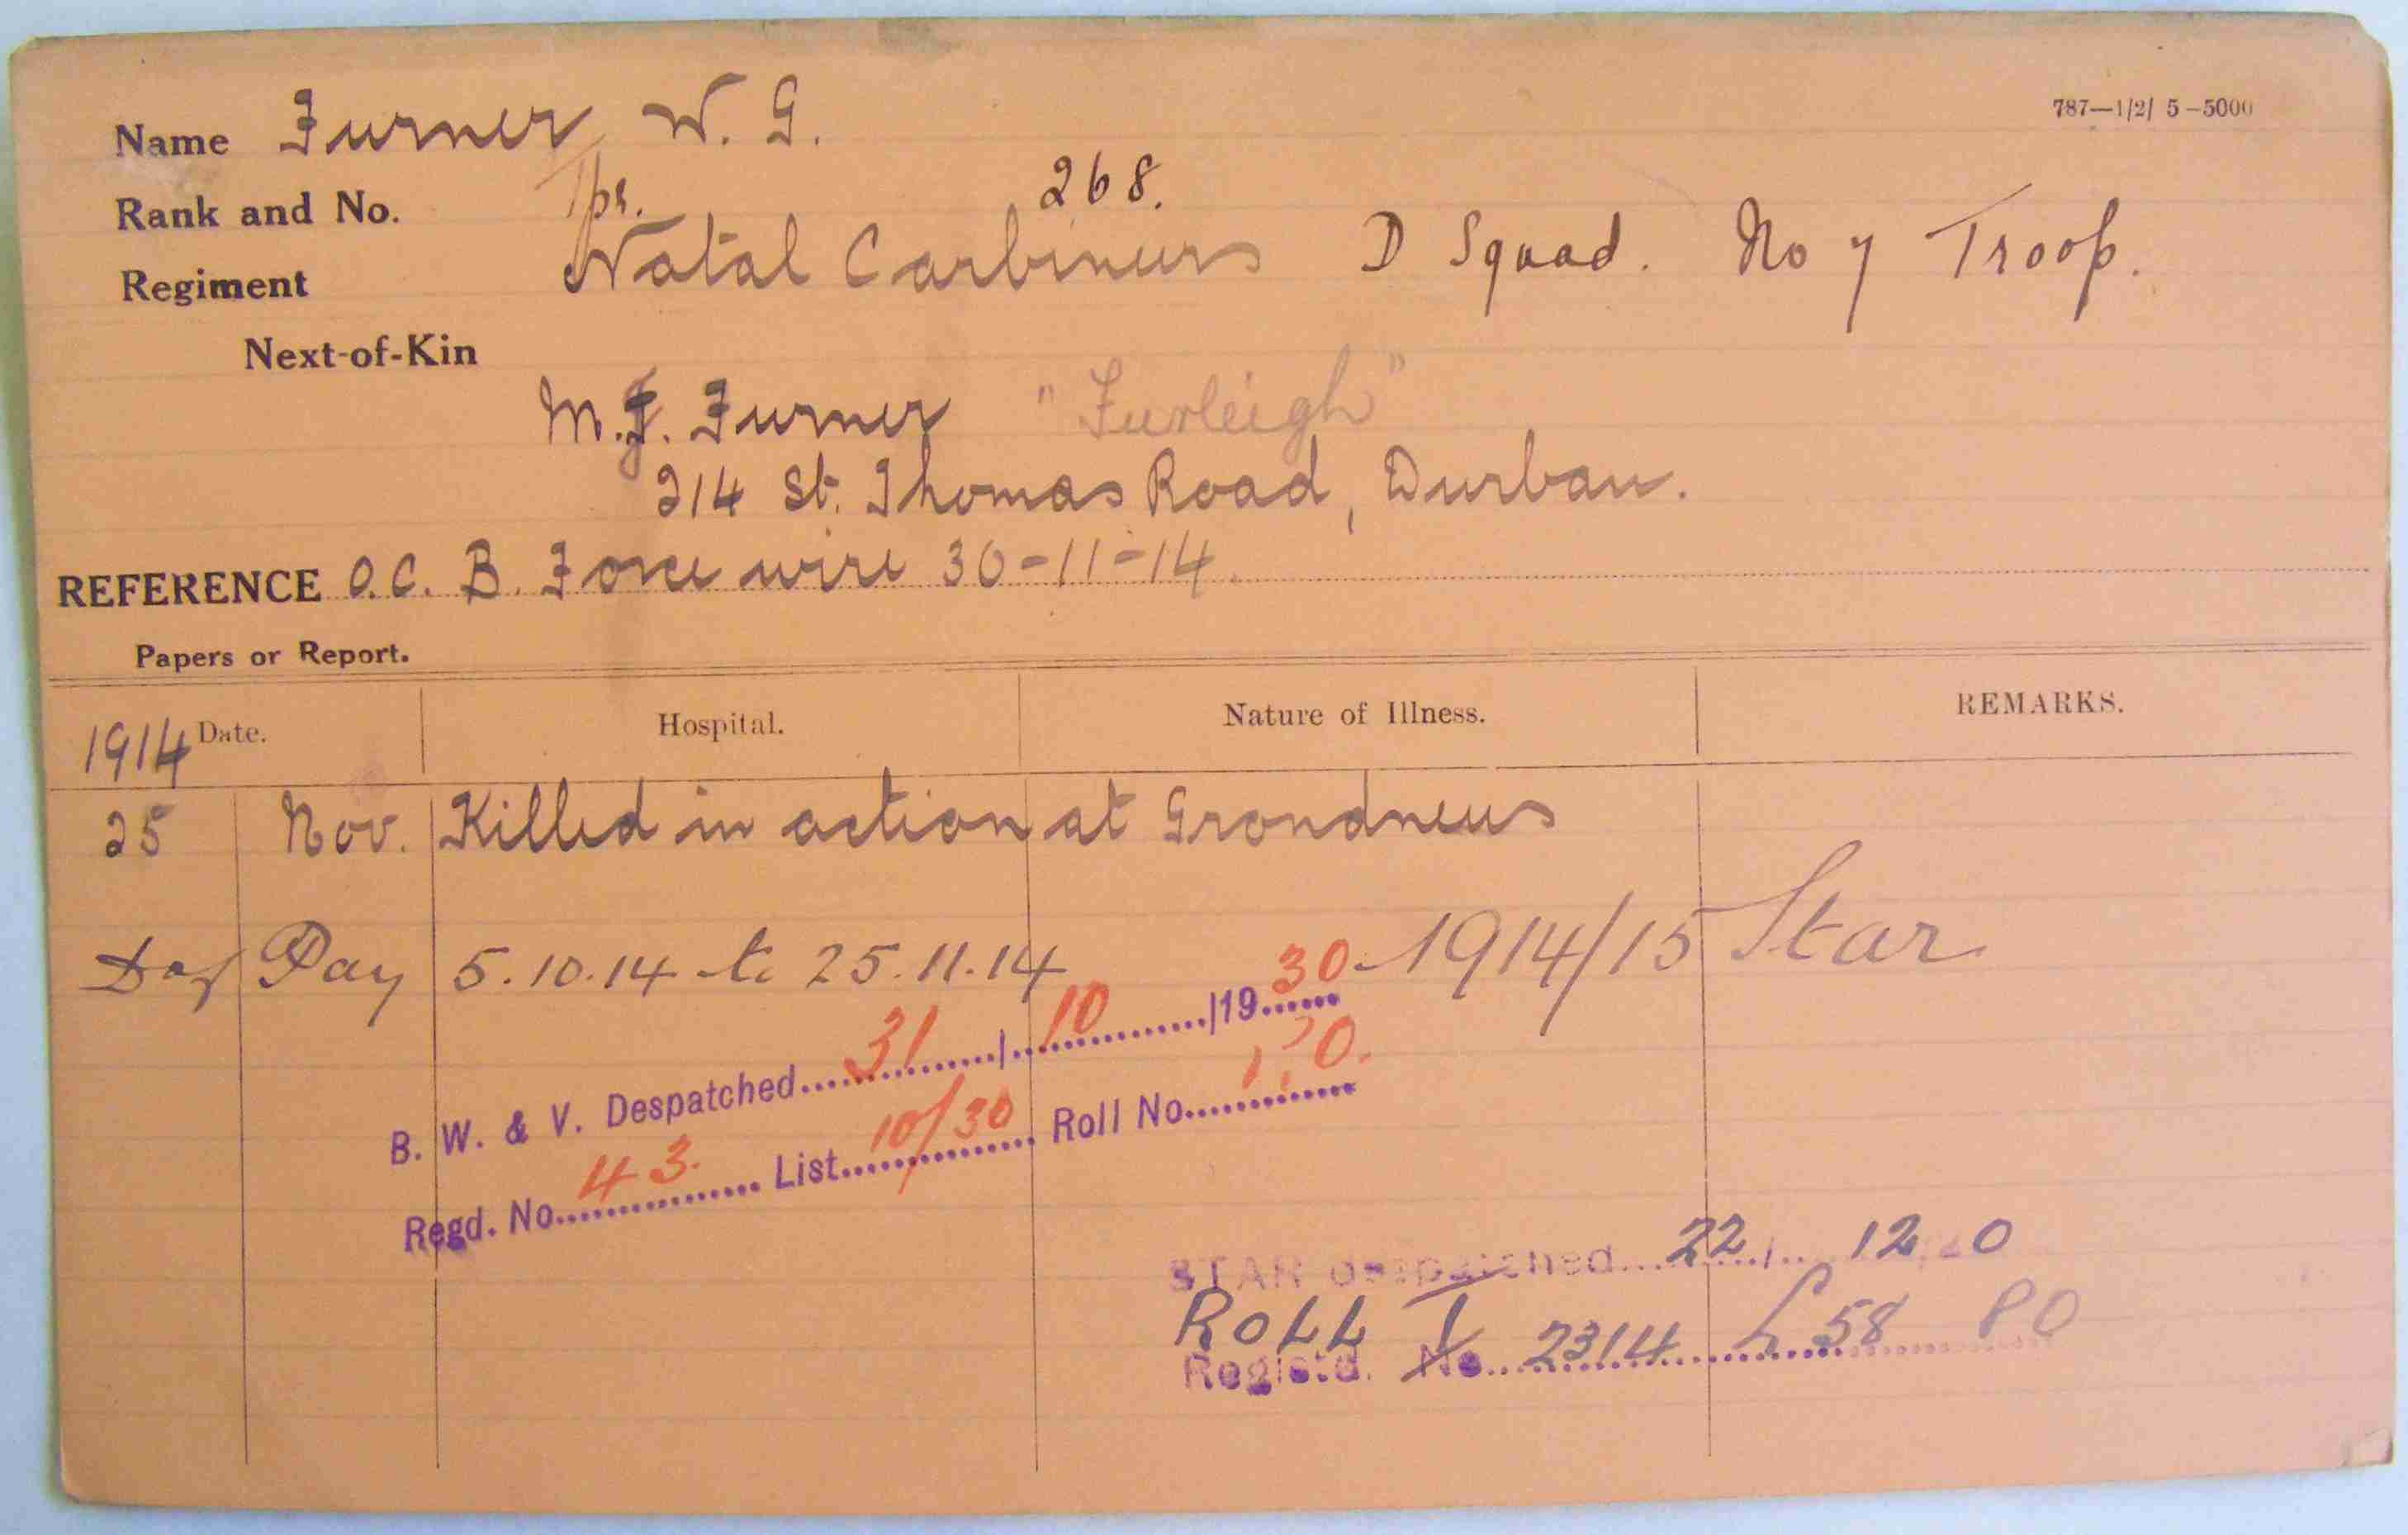 787—1/2/ 5—5000
Name Furner W. G.
Rank and No. Tpr. 268.
Regiment Natal Carbineers D Squad. No 7 Troop.
Next-of-Kin
M.J. Furner "Furleigh"
214 St. Thomas Road, Durban.
REFERENCE O.C. B. Force wire 30-11-14.
Papers or Report.
1914 Date. Hospital. Nature of Illness. REMARKS.
25 Nov. Killed in action at Grondneus
Def Pay 5.10.14 to 25.11.14 1914/15 Star
B. W. & V. Despatched 31 / 10 /19 30
Regd. No. 43. List 10/30 Roll No.
STAR despatched 22 / 12 20
ROLL 1
Registd. No. 2314 L 58 PO